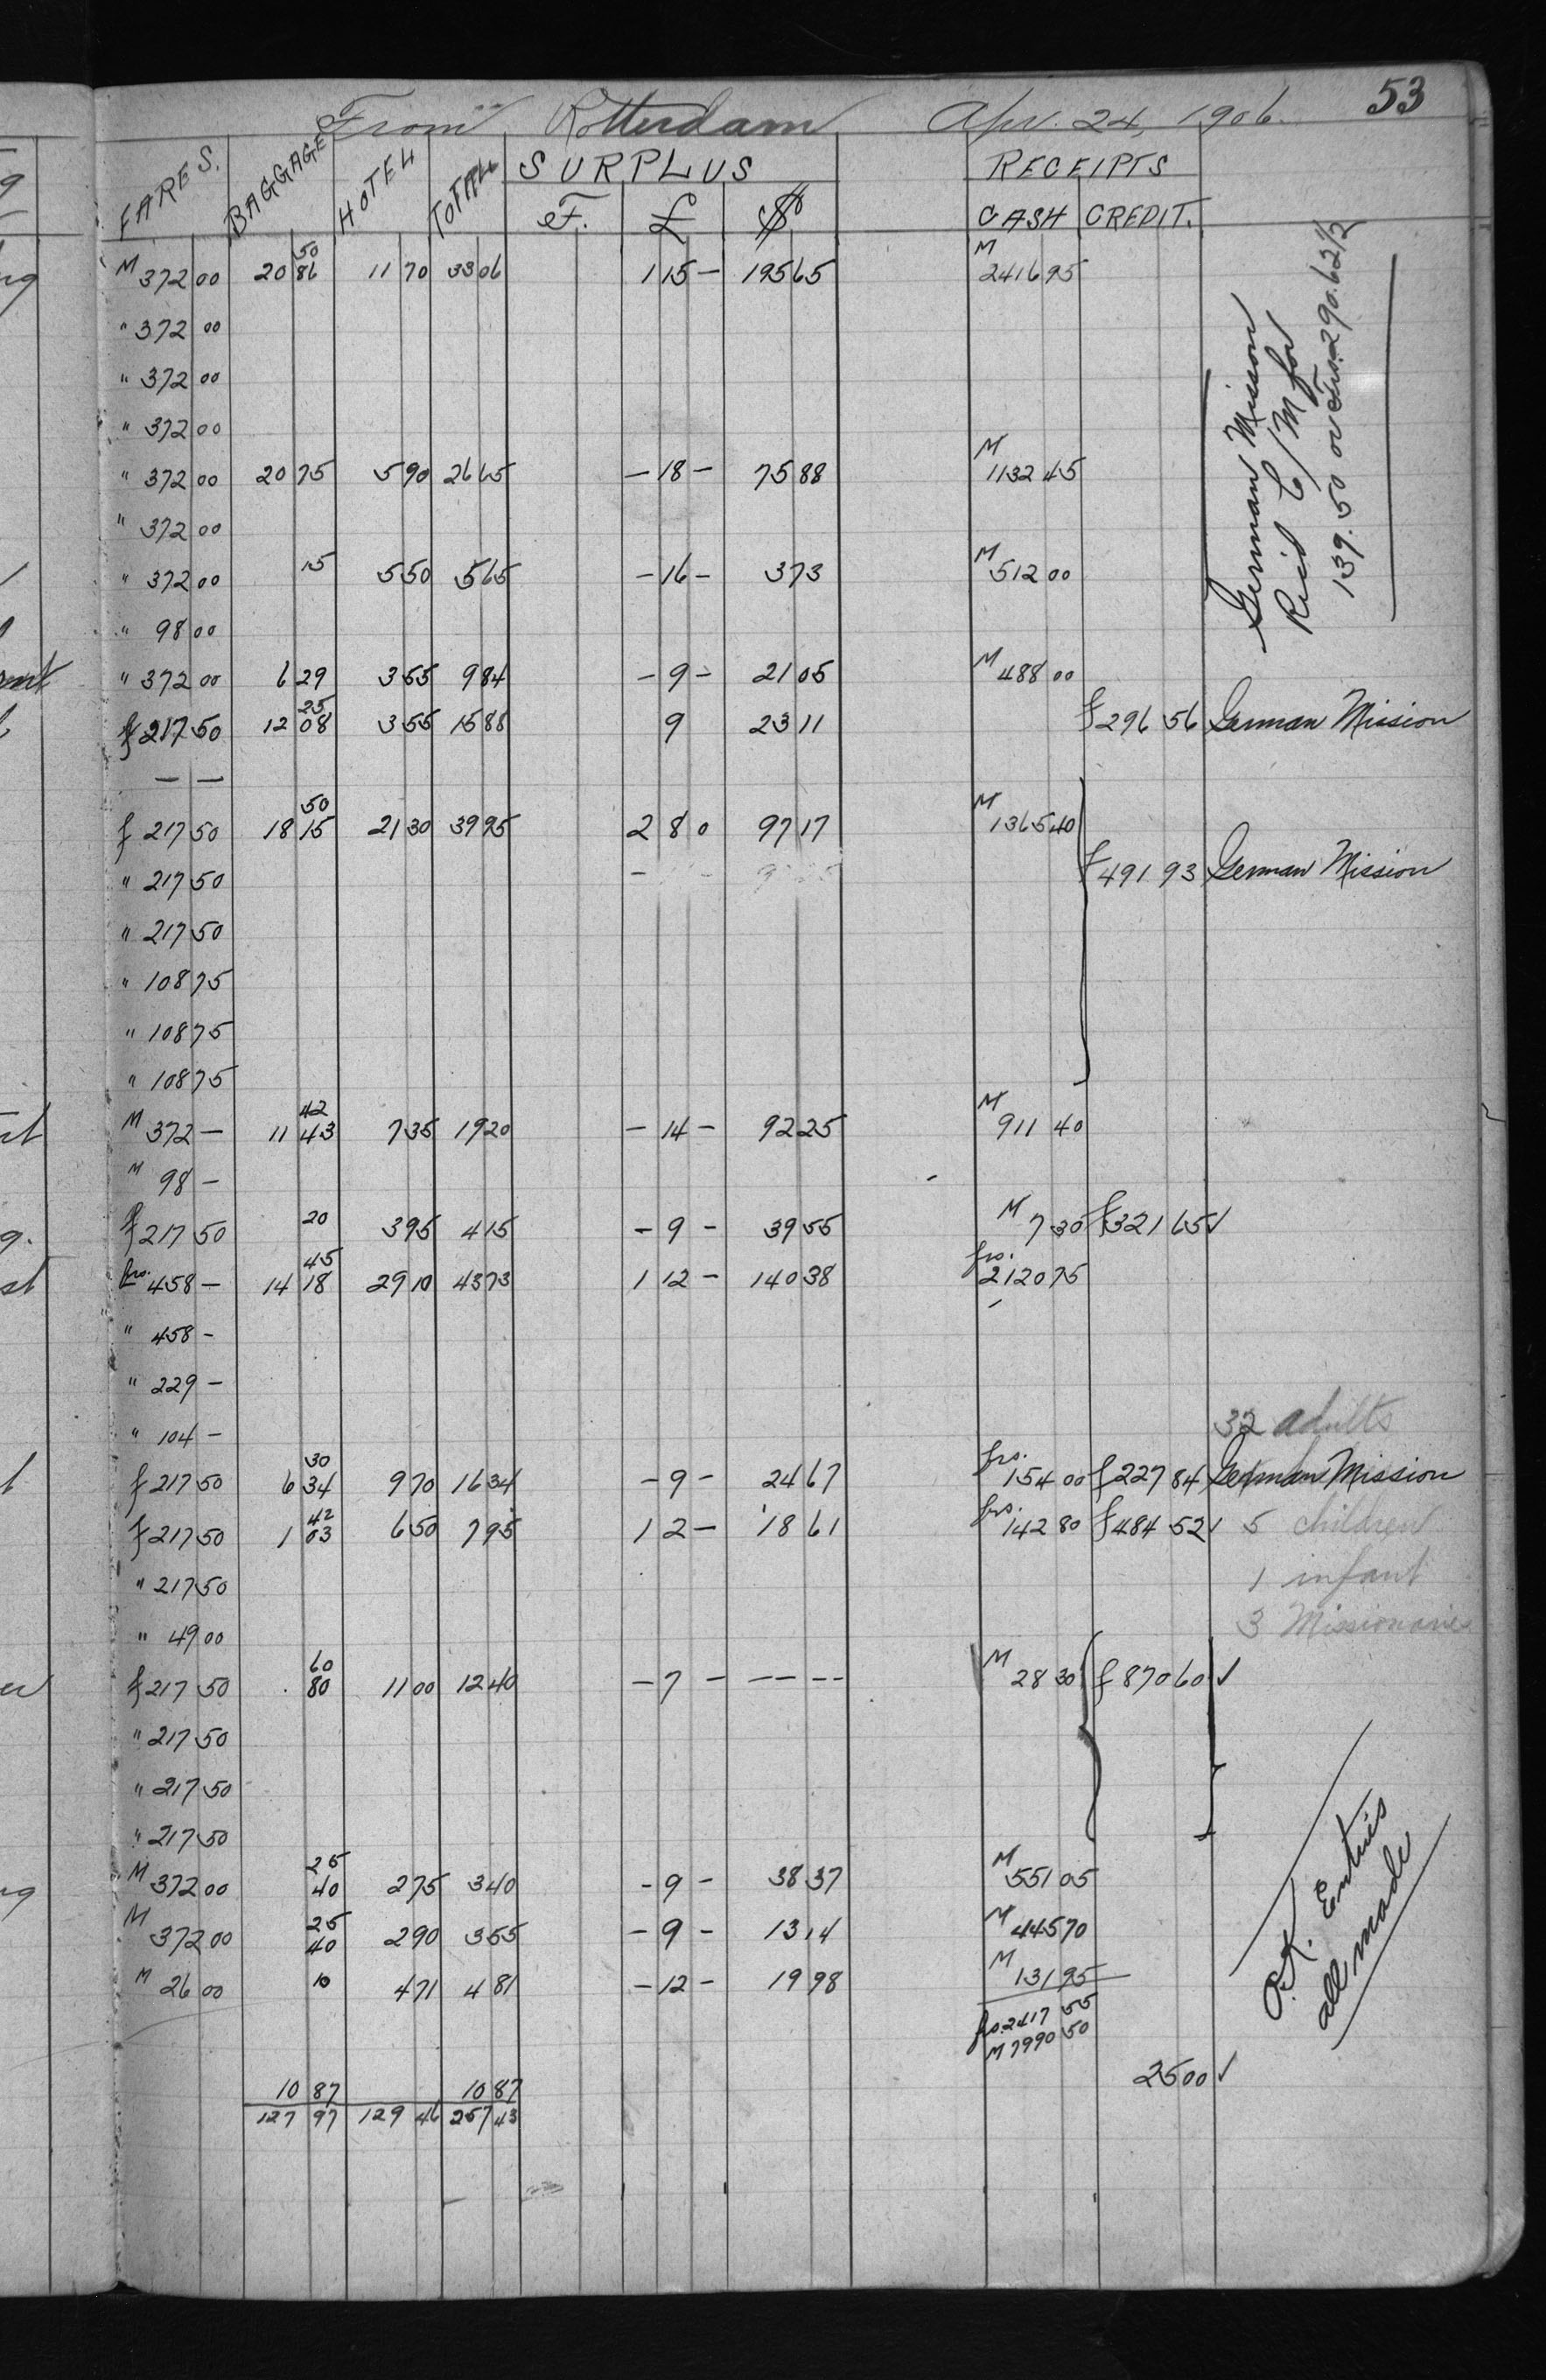 53
From Rotterdam Apr. 24, 1906.
FARES. BAGGAGE HOTEL TOTAL SURPLUS RECEIPTS
F. £ $ CASH CREDIT.
50
M 372 00 20 86 11 70 33 06 1 15 - 195 65 M 2416 95
" 372 00
" 372 00
" 372 00
" 372 00 20 75 5 90 26 65 - 18 - 75 88 M 1132 45
" 372 00
" 372 00 15 5 50 5 65 - 16 - 3 73 M 512 00
" 98 00
" 372 00 6 29 3 55 9 84 - 9 - 21 05 M 488 00
25
f 217 50 12 08 3 55 15 88 9 23 11 f 296 56 German Mission
— —
50
f 217 50 18 15 21 30 39 95 2 8 0 97 17 M 1365 40
" 217 50 f 491 93 German Mission
" 217 50
" 108 75
" 108 75
" 108 75
42
M 372 — 11 43 7 35 19 20 - 14 - 92 25 M 911 40
M 98 —
f 217 50 20 3 95 4 15 - 9 - 39 55 M 7 30 f 321 65 ✓
45
frs. 458 — 14 18 29 10 43 73 1 12 - 140 38 frs. 2120 75
" 458 -
" 229 —
" 104 —
32 adults
30
f 217 50 6 34 9 70 16 34 - 9 - 24 67 frs. 154 00 f 227 84 German Mission
42
f 217 50 1 03 6 50 7 95 1 2 — 18 61 frs. 142 80 f 484 52 ✓ 5 children
" 217 50 1 infant
" 49 00 3 Missionaries
60
f 217 50 80 11 00 12 40 - 7 - - - - - M 28 30 f 870 60 ✓
" 217 50
" 217 50
" 217 50
25
M 372 00 40 2 75 3 40 - 9 - 38 37 M 551 05
25
M 372 00 40 2 90 3 55 - 9 - 13 14 M 445 70
M 26 00 10 4 71 4 81 - 12 - 19 98 M 131 95
frs. 2417 55
M 7990 50
25 00 ✓
10 87 10 87
127 97 129 46 257 43
German Mission
Reid C/M for
139.50 290.62½
O.K. Entries
all made